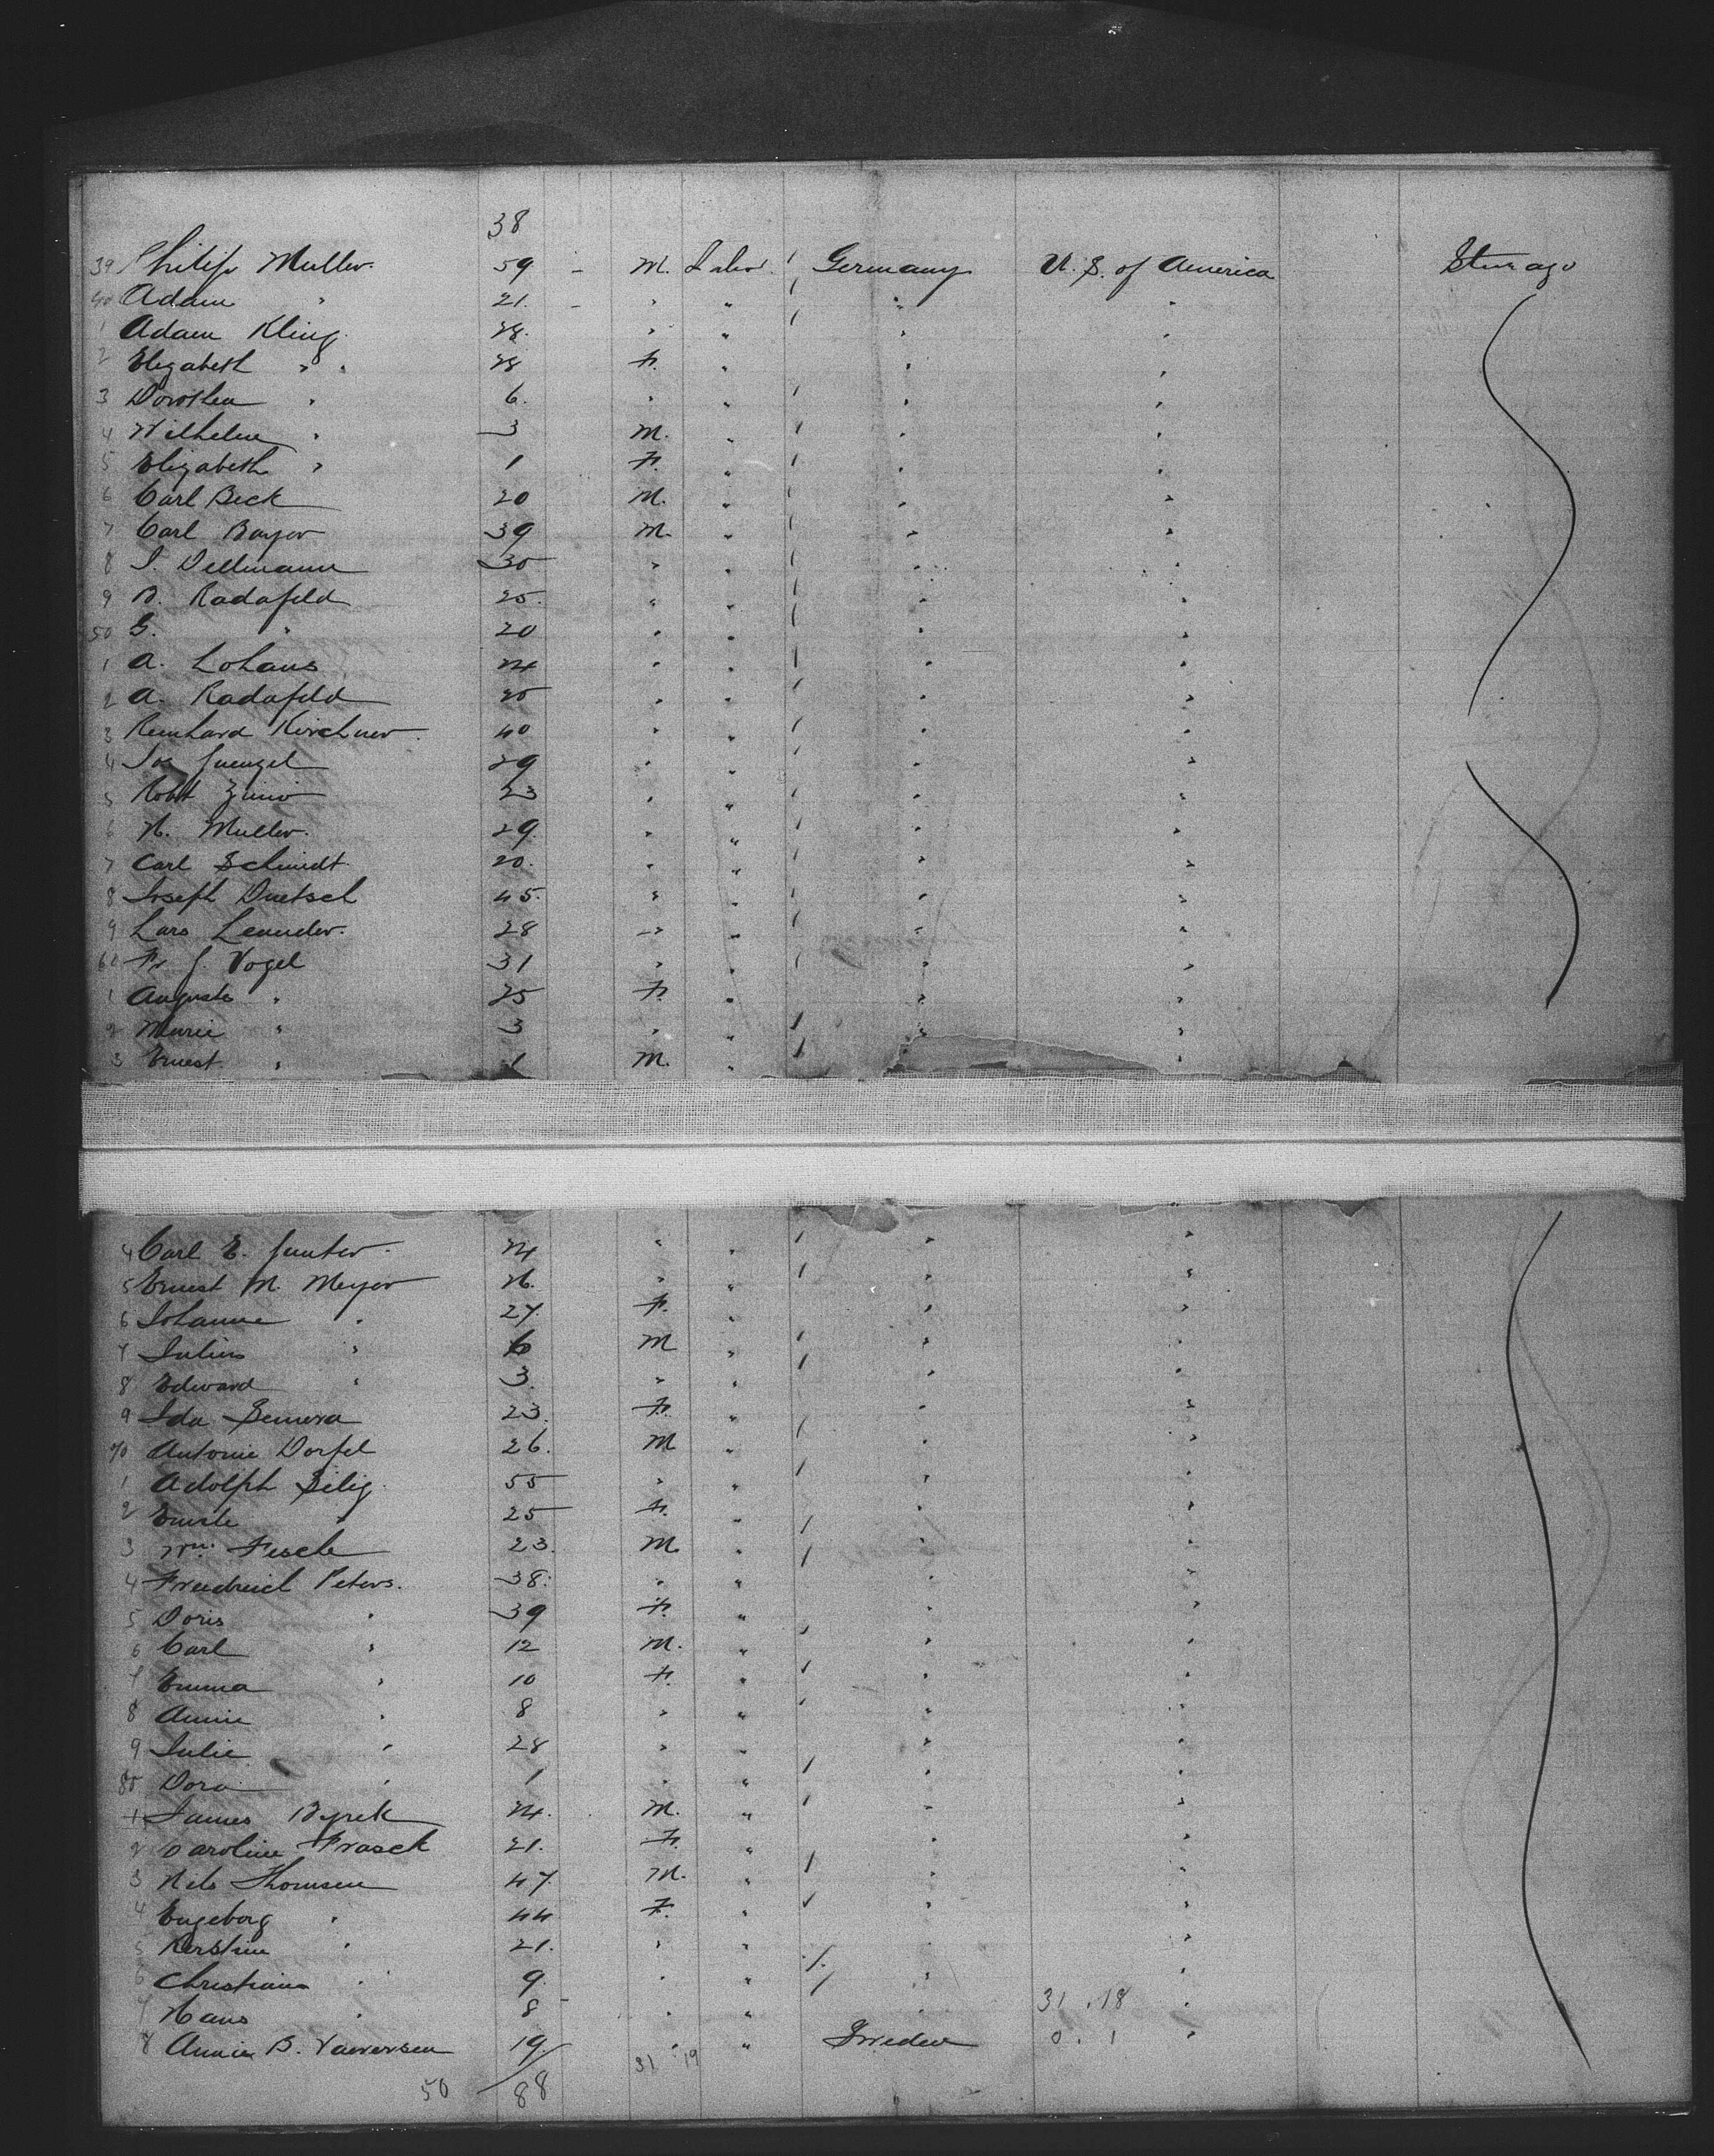 38
39 Philip Muller. 59 - M. Labor. / Germany U. S. of America Steerage
40 Adam " 21. - " " / " "
1 Adam Kling. 28. " " / " "
2 Elizabeth " " 28 F. " " "
3 Dorothea " 6. " " / " "
4 Wilhelm " 3 M. " / " "
5 Elizabeth " 1 F. " / " "
6 Carl Beck 20 M. " / " "
7 Carl Bayer 39 M. " / " "
8 J. Dellmann 30 " " / " "
9 B. Radafeld 25. " " / " "
50 G. " 20 " " / " "
1 A. Lohaus 24 " " / " "
2 A. Radafeld 25 " " / " "
3 Reinhard Kirchner. 40 " " / " "
4 Jos Juengel 29 " " / " "
5 Robt 23 " " / " "
6 H. Muller. 29. " " / " "
7 Carl Schmidt. 20. " " / " "
8 Joseph Duetsch 45. " " / " "
9 Lars Leander. 28 " " / " "
60 Fr J. Vogel 31 " " / " "
1 Auguste " 25 F. " " "
2 Marie " 3 " " / " "
3 Ernest " 1 M. " / " "
4 Carl E. Junter. 24 " " / " "
5 Ernest M. Meyer 26. " " / " "
6 Johanne " 27. F. " " "
7 Julius " 6 M " / " "
8 Edward " 3. " " / " "
9 Ida 23. F. " " "
70 Antonie Dorfel 26. M " / " "
1 Adolph Selig. 55 " " / " "
2 " 25 F. " " "
3 Wm. Fesche 23. M " / " "
4 Freidreich Peters. 38. " " / " "
5 Doris " 39 F. " " "
6 Carl " 12 M. " / " "
7 Emma " 10 F. " / " "
8 Annie " 8 " " / " "
9 Julie " 28 " " " "
80 Dora " 1 " " / " "
1 James Byrek 24. M. " / " "
2 Caroline Frasch 21. F. " " "
3 Nils Thomsen 47. M. " / " "
4 Engeborg " 44 F. " / " "
5 Kerstine " 21. " " "
6 Christiane " 9. " " / " "
7 Hans " 8 " " / " 31 . 18 "
8 Annie B. 19 " " Sweden 0 . 1 "
31 19
50 88